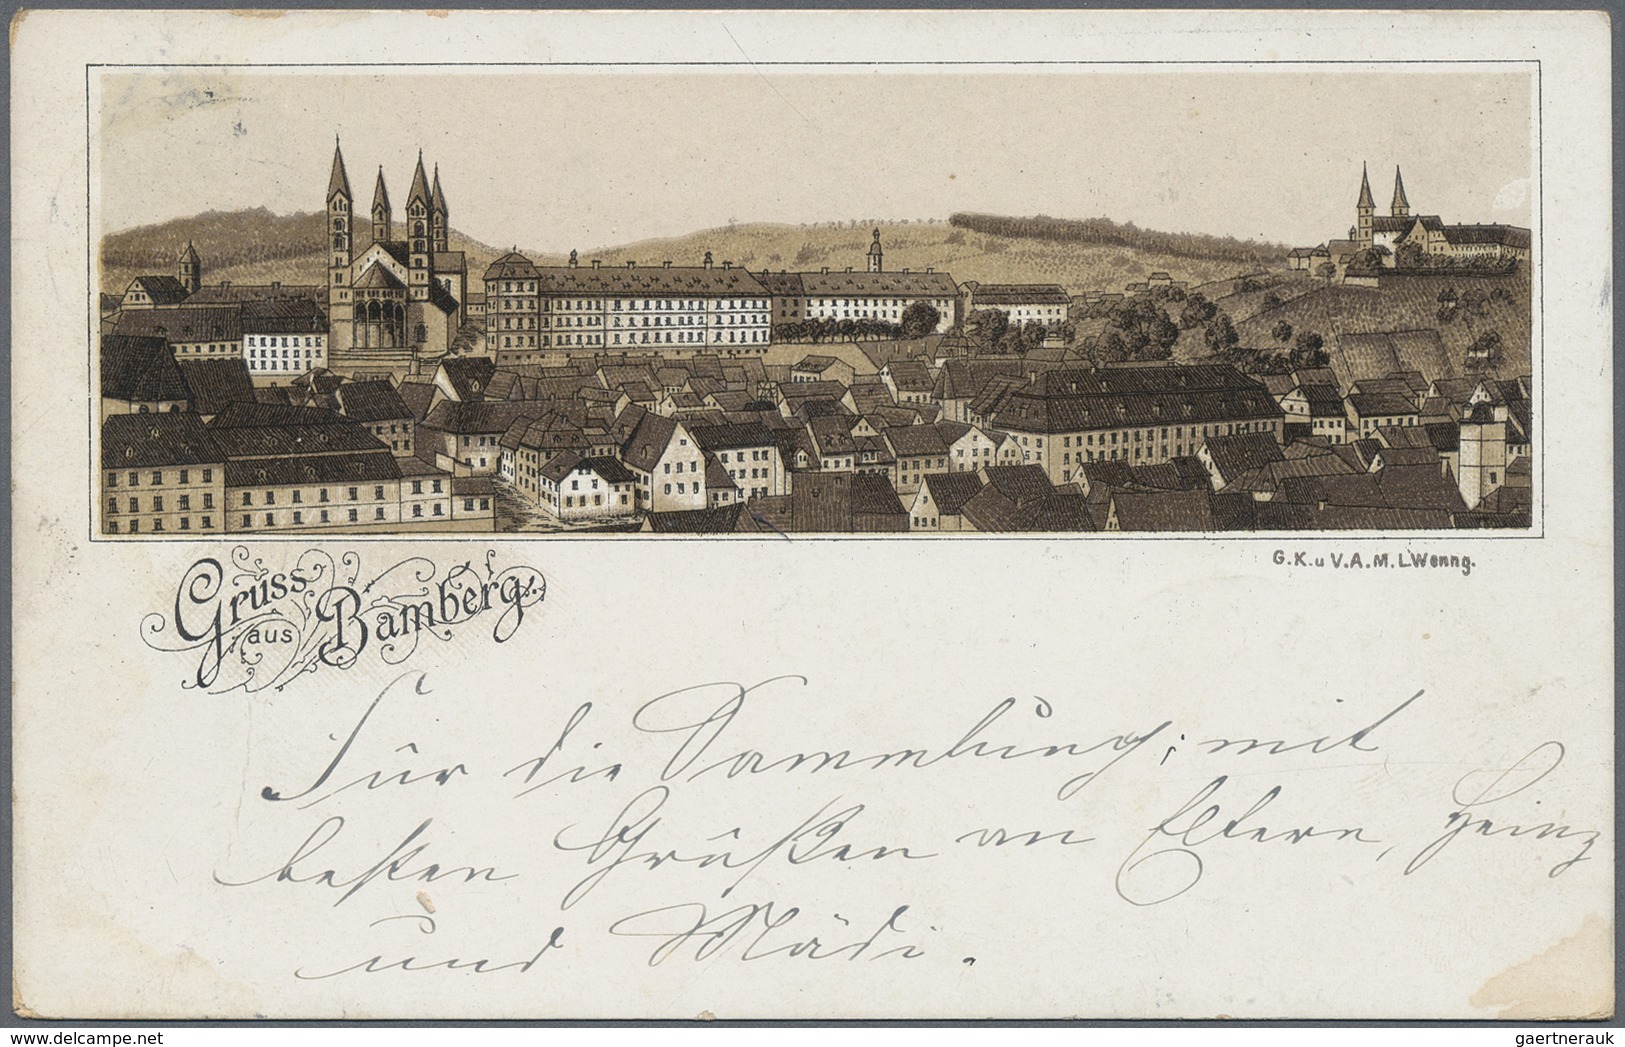 G.K.u V.A.M.L.Wenng.
Gruss
aus Bamberg.
Für die Sammlung; mit
besten Grüßen an Eltern, Heinz
und Mädi.
www.delcampe.net
gaertnerauk